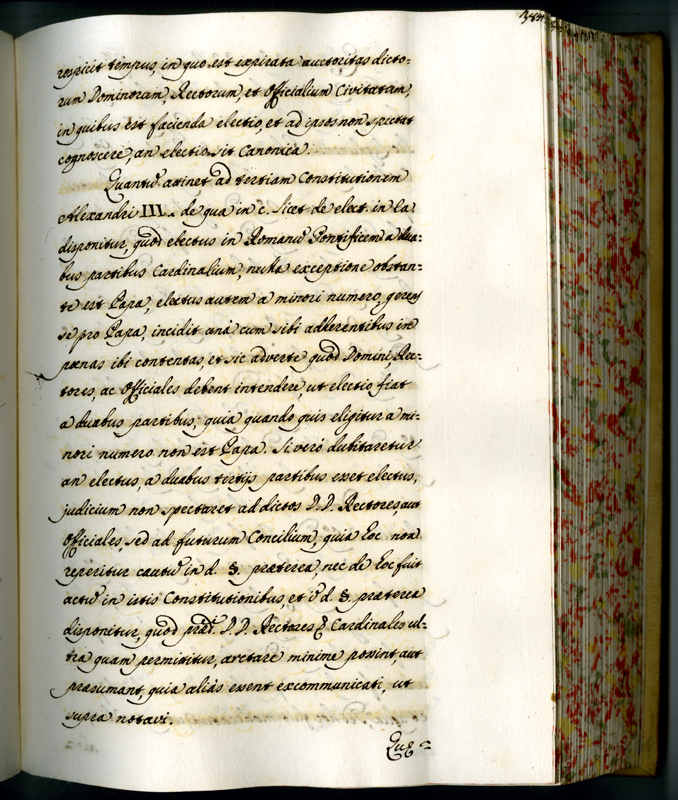 respicit tempus, in quo est expirata auctoritas dicto=
rum Dominorum, Rectorum, et Officialium Civitatum,
in quibus est facienda electio, et ad ipsos non spectat
cognoscere, an electio sit Canonica.
Quantũ atinet ad tertiam Constitutionem
Alexandri III. de qua in c. licet de elect. in ea
disponitur, quod electus in Romanũ Pontificem a dua=
bus partibus Cardinalium, nulla exceptione obstan=
te est Papa, electus autem a minori numero, gerens
se pro Papa, incidit una cum sibi adherentibus in
pænas ibi contentas, et sic adverte quod Domini, Rec=
tores, ac Officiales debent intendere, ut electio fiat
a duabus partibus, quia quando quis eligitur a mi=
nori numero non est Papa. Si verò dubitaretur
an electus, a duabus tertijs partibus esset electus,
judicium non spectaret ad dictos D.D. Rectores, aut
Officiales, sed ad futurum Concilium, quia hoc non
reperitur cautũ in d. §. præterea, nec de hoc fuit
actũ in istis Constitutionibus, et ĩ d. §. præterea
disponitur, quod præd. D.D. Rectores Cardinales ul=
tra quam permititur, arctare minime possint, aut
præsumant, quia aliàs essent excommunicati, ut
supra notavi.
Quę=